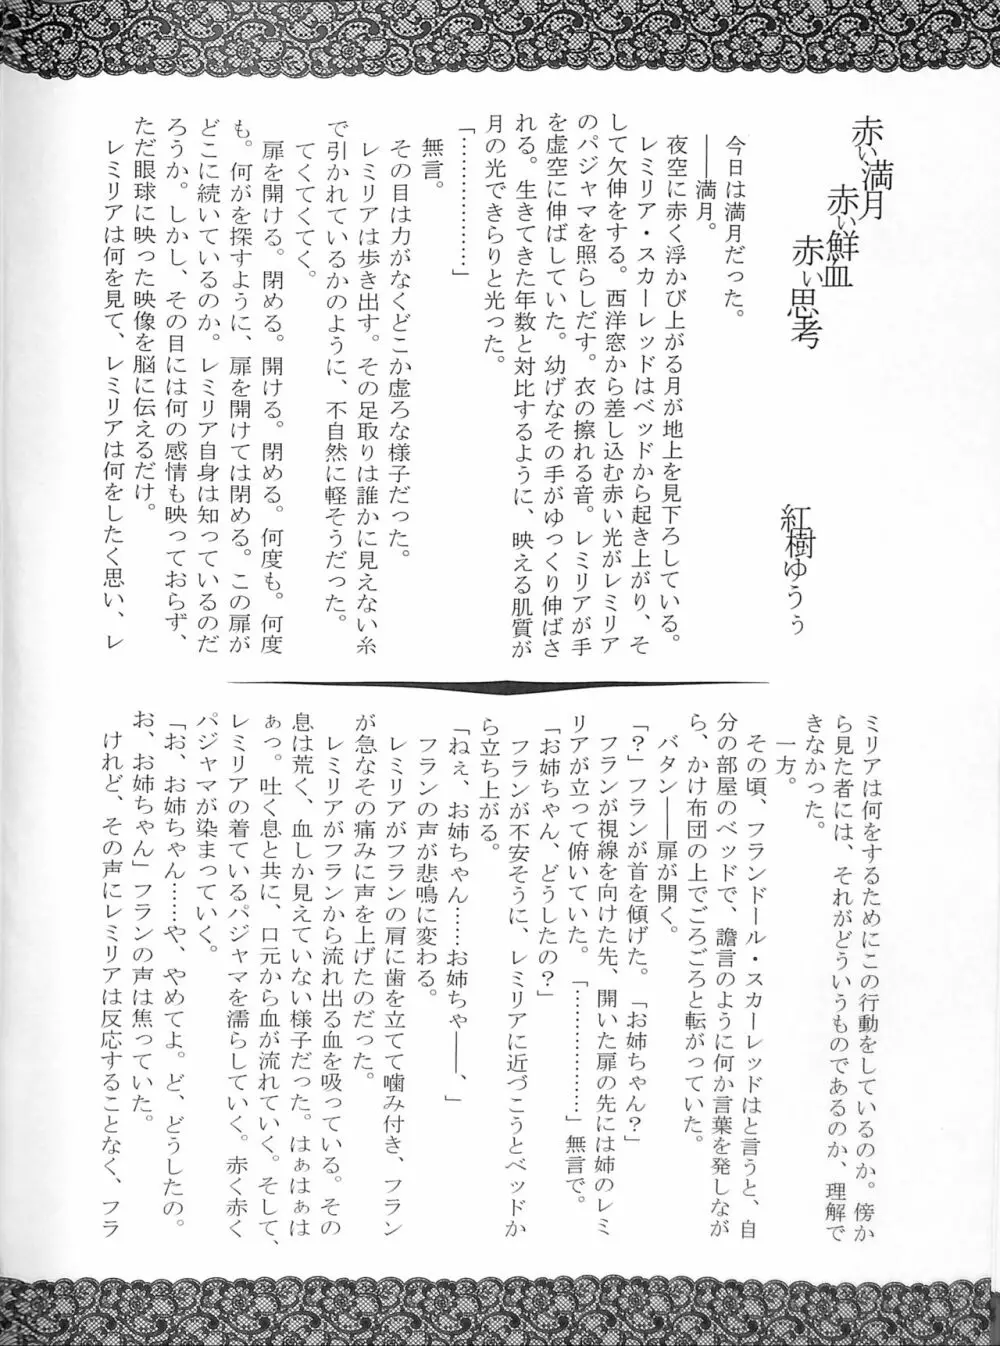 赤い満月
赤い鮮血
赤い思考
紅樹ゆうぅ
今日は満月だった。
――満月。
夜空に赤く浮かび上がる月が地上を見下ろしている。
レミリア・スカーレッドはベッドから起き上がり、そ
して欠伸をする。西洋窓から差し込む赤い光がレミリア
のパジャマを照らしだす。衣の擦れる音。レミリアが手
を虚空に伸ばしていた。幼げなその手がゆっくり伸ばさ
れる。生きてきた年数と対比するように、映える肌質が
月の光できらりと光った。
「………………」
無言。
その目は力がなくどこか虚ろな様子だった。
レミリアは歩き出す。その足取りは誰かに見えない糸
で引かれているかのように、不自然に軽そうだった。
てくてくてく。
扉を開ける。閉める。開ける。閉める。何度も。何度
も。何がを探すように、扉を開けては閉める。この扉が
どこに続いているのか。レミリア自身は知っているのだ
ろうか。しかし、その目には何の感情も映っておらず、
ただ眼球に映った映像を脳に伝えるだけ。
レミリアは何を見て、レミリアは何をしたく思い、レ
ミリアは何をするためにこの行動をしているのか。傍か
ら見た者には、それがどういうものであるのか、理解で
きなかった。
一方。
その頃、フランドール・スカーレッドはと言うと、自
分の部屋のベッドで、譫言のように何か言葉を発しなが
ら、かけ布団の上でごろごろと転がっていた。
バタン――扉が開く。
「?」フランが首を傾げた。「お姉ちゃん?」
フランが視線を向けた先、開いた扉の先には姉のレミ
リアが立って俯いていた。「………………」無言で。
「お姉ちゃん、どうしたの?」
フランが不安そうに、レミリアに近づこうとベッドか
ら立ち上がる。
「ねぇ、お姉ちゃん……お姉ちゃ――、」
フランの声が悲鳴に変わる。
レミリアがフランの肩に歯を立てて噛み付き、フラン
が急なその痛みに声を上げたのだった。
レミリアがフランから流れ出る血を吸っている。その
息は荒く、血しか見えていない様子だった。はぁはぁは
ぁっ。吐く息と共に、口元から血が流れていく。そして、
レミリアの着ているパジャマを濡らしていく。赤く赤く
パジャマが染まっていく。
「お、お姉ちゃん……や、やめてよ。ど、どうしたの。
お、お姉ちゃん」フランの声は焦っていた。
けれど、その声にレミリアは反応することなく、フラ